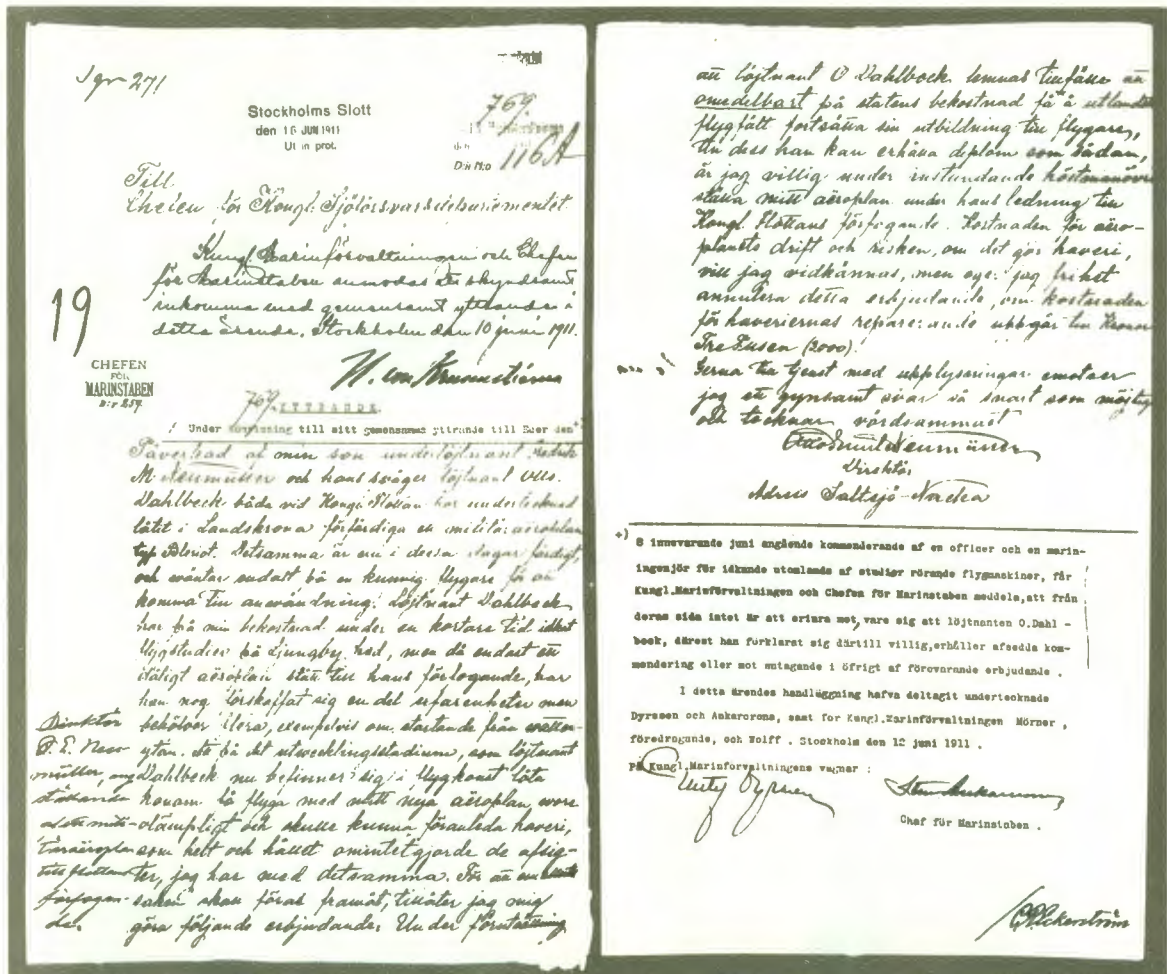 Jgr 271
Stockholms Slott
den 16 JUNI 1911
Ut in prot.
769
D:r N:o 116A
Till
Chefen för Kongl. Sjöförsvarsdepartementet
Kungl. Marinförvaltningen och Chefen
för Marinstaben anmodas att skyndsamt
inkomma med gemensamt yttrande i
detta ärende. Stockholm den 10 juni 1911.
19
CHEFEN
FÖR
MARINSTABEN
D:r 259
769. YTTRANDE.
Under till sitt gemensamma yttrande till Eder den
Påverkad af min son underlöjtnant Fredrik
M. Neumüller och hans svåger löjtnant Olle
Dahlbeck båda vid Kongl. Flottan har undertecknad
låtit i Landskrona förfärdiga en militär aëroplan
typ Bleriot. Detsamma är nu i dessa dagar färdigt,
och väntar endast på en kunnig flygare för att
komma till användning. Löjtnant Dahlbeck
har på min bekostnad under en kortare tid idkat
flygstudier på Ljungby hed, men då endast ett
dåligt aëroplan stått till hans förfogande, har
han nog förskaffat sig en del erfarenheter men
behöfver flera, exempelvis om startande från vatten-
ytan. Att på det utvecklingsstadium, som löjtnant
Dahlbeck nu befinner sig i flygkonst låta
honom få flyga med mitt nya aëroplan vore
olämpligt och skulle kunna föranleda haveri,
som helt och hållet omintetgjorde de afsig-
ter, jag har med detsamma. För att emellertid
saken skall föras framåt, tillåter jag mig
göra följande erbjudande. Under förutsättning
Direktör
O. E. Neu-
müller, ang
ställande
af ett mili-
täraëroplan
till flottans
förfogan-
de.
att löjtnant O Dahlbeck lemnas tillfälle att
omedelbart på statens bekostnad få å utländskt
flygfält fortsätta sin utbildning till flygare,
till dess han kan erhålla diplom som sådan,
är jag villig under instundande höstmanövrer
ställa mitt aëroplan under hans ledning till
Kongl. Flottans förfogande. Kostnaden för aëro-
planets drift och risken, om det gör haveri,
vill jag vidkännas, men äger jag frihet
annulera detta erbjudande, om kostnaden
för haveriernas reparerande uppgår till Kronor
Tre Tusen (2000).
Gerna till tjenst med upplysningar emotser
jag ett gynsamt svar så snart som möjligt
och tecknar vördsammast
Otto Emil Neumüller
Direktör
Adress Saltsjö-Nacka
+) 8 innevarande juni angående kommenderande af en officer och en marin-
ingenjör för idkande utomlands af studier rörande flygmaskiner, får
Kungl.Marinförvaltningen och Chefen för Marinstaben meddela, att från
deras sida intet är att erinra mot, vare sig att löjtnanten O.Dahl -
beck, därest han förklarat sig därtill villig, erhåller afsedda kom-
mendering eller mot mutagande i öfrigt af förevarande erbjudande .
I detta ärendes handläggning hafva deltagit undertecknade
Dyrssen och Ankarcrona, samt för Kungl.Marinförvaltningen Mörner ,
föredragande, och Wolff . Stockholm den 12 juni 1911 .
På Kungl.Marinförvaltningens vägnar :
Chef för Marinstaben .